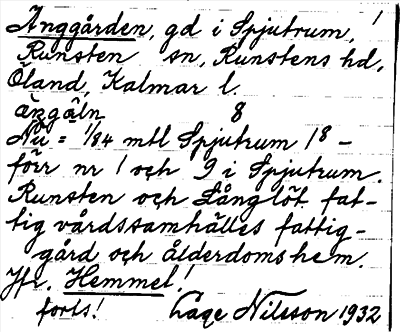 Änggården, gd i Spjutrum, 1
Runsten sn, Runstens hd,
Öland, Kalmar l.
äŋgåln 8
Nu = 1/84 mtl Spjutrum 1⁸ –
förr nr 1 och 9 i Spjutrum.
Runsten och Långlöt fat-
tig vårdssamhälles fattig-
gård och ålderdomshem.
Jfr. Hemmel!
forts! Lage Nilsson 1932